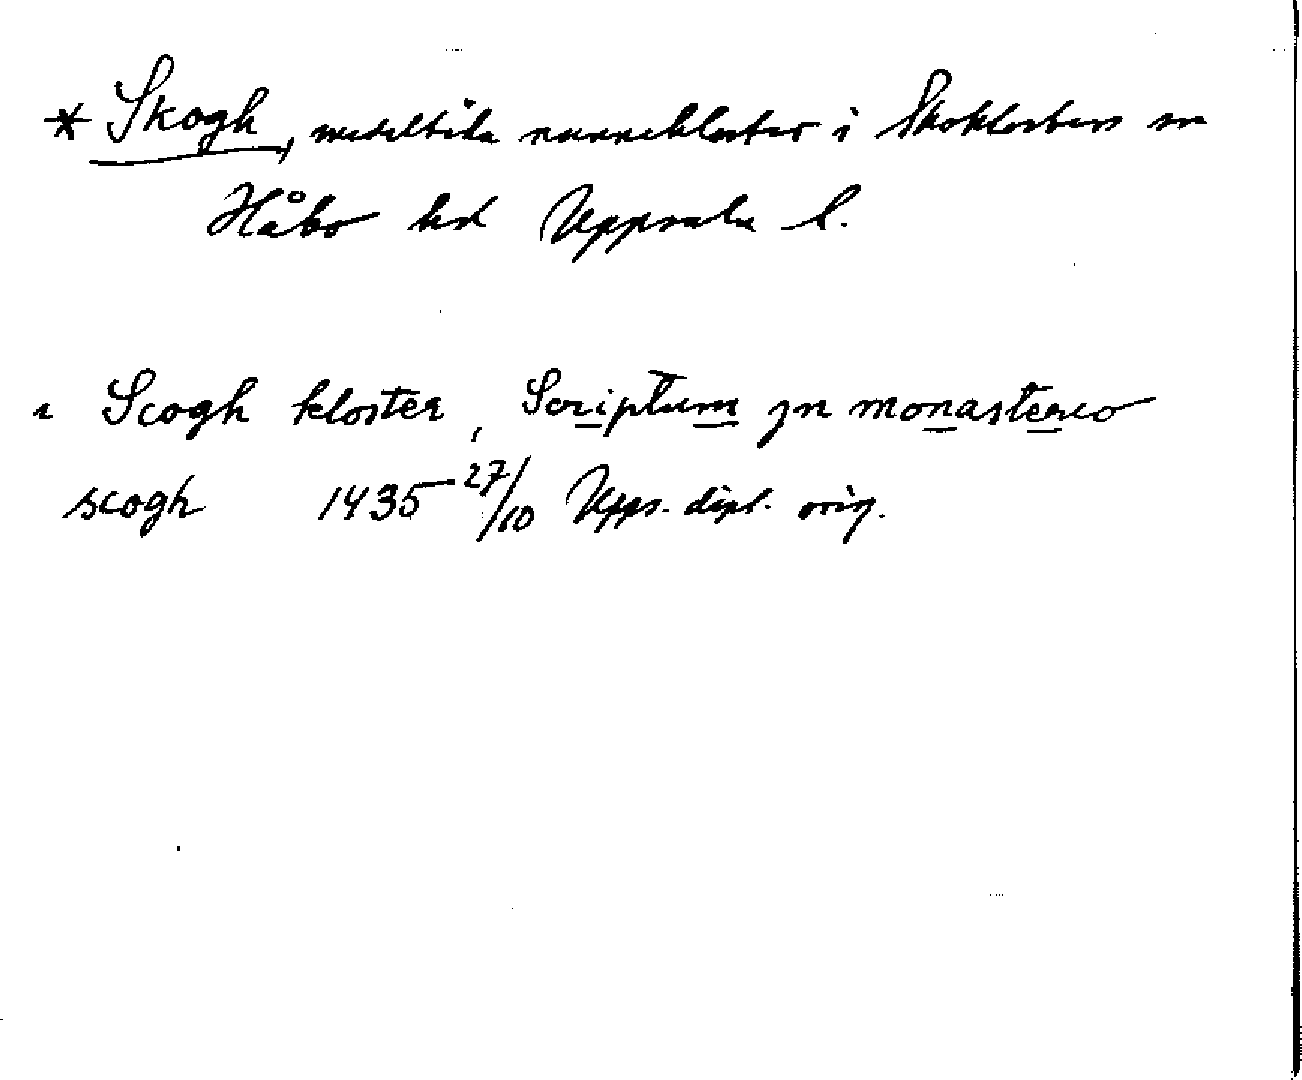 * Skogh, medeltida nunnekloster i Skoklosters sn
Håbo hd Uppsala l.
i Scogh kloster, Scriptum jn monasterio
scogh 1435 27/10 Upps. dipl. orig.